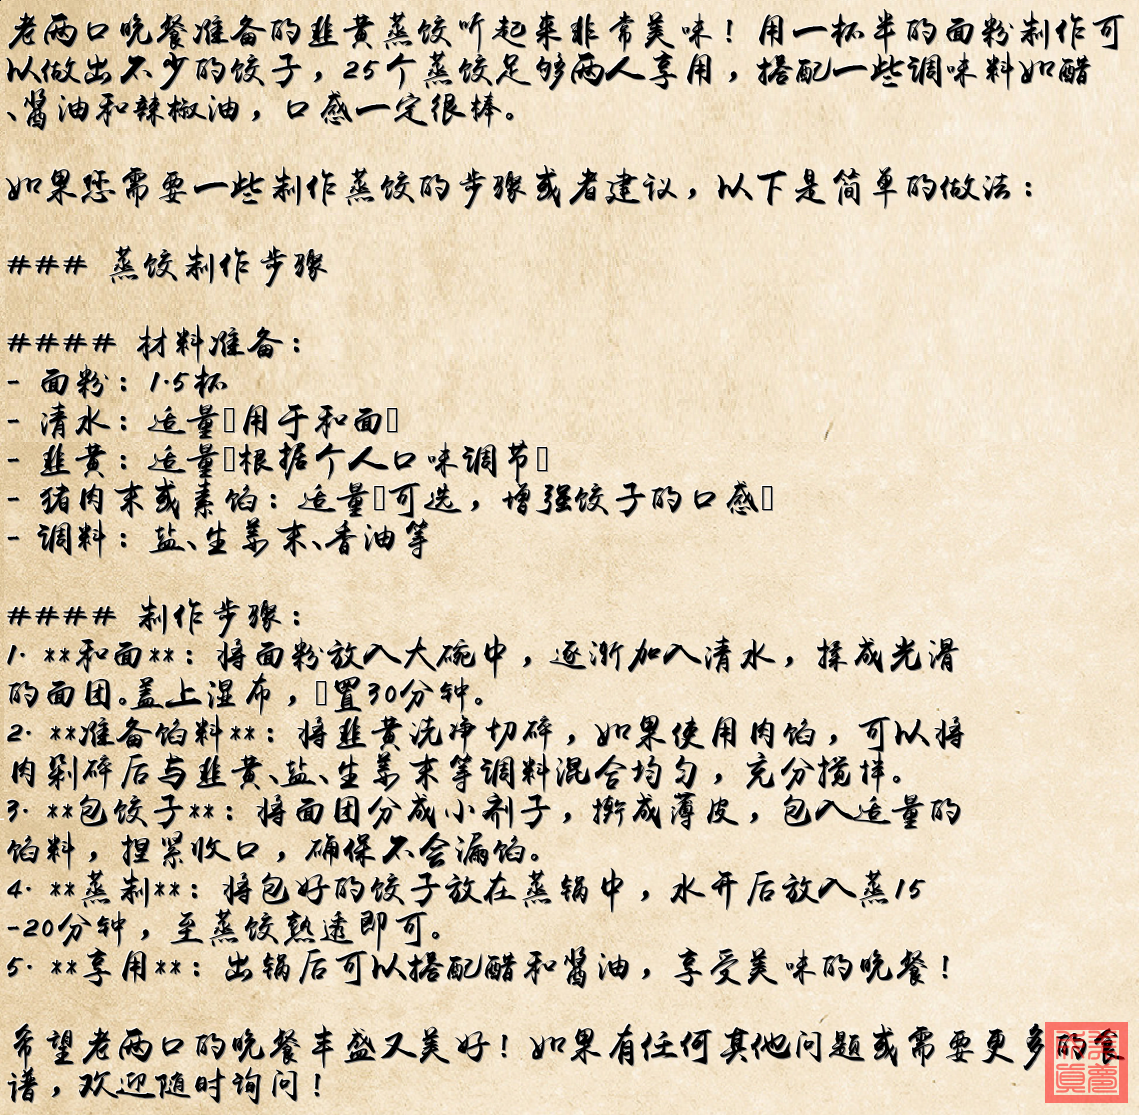 老两口晚餐准备的韭黄蒸饺听起来非常美味！用一杯半的面粉制作可
以做出不少的饺子，25个蒸饺足够两人享用，搭配一些调味料如醋
、酱油和辣椒油，口感一定很棒。
如果您需要一些制作蒸饺的步骤或者建议，以下是简单的做法：
### 蒸饺制作步骤
#### 材料准备：
- 面粉：1.5杯
- 清水：适量用于和面
- 韭黄：适量根据个人口味调节
- 猪肉末或素馅：适量可选，增强饺子的口感
- 调料：盐、生姜末、香油等
#### 制作步骤：
1. **和面**：将面粉放入大碗中，逐渐加入清水，揉成光滑
的面团。盖上湿布，置30分钟。
2. **准备馅料**：将韭黄洗净切碎，如果使用肉馅，可以将
肉剁碎后与韭黄、盐、生姜末等调料混合均匀，充分搅拌。
3. **包饺子**：将面团分成小剂子，擀成薄皮，包入适量的
馅料，捏紧收口，确保不会漏馅。
4. **蒸制**：将包好的饺子放在蒸锅中，水开后放入蒸15
-20分钟，至蒸饺熟透即可。
5. **享用**：出锅后可以搭配醋和酱油，享受美味的晚餐！
希望老两口的晚餐丰盛又美好！如果有任何其他问题或需要更多的食
谱，欢迎随时询问！